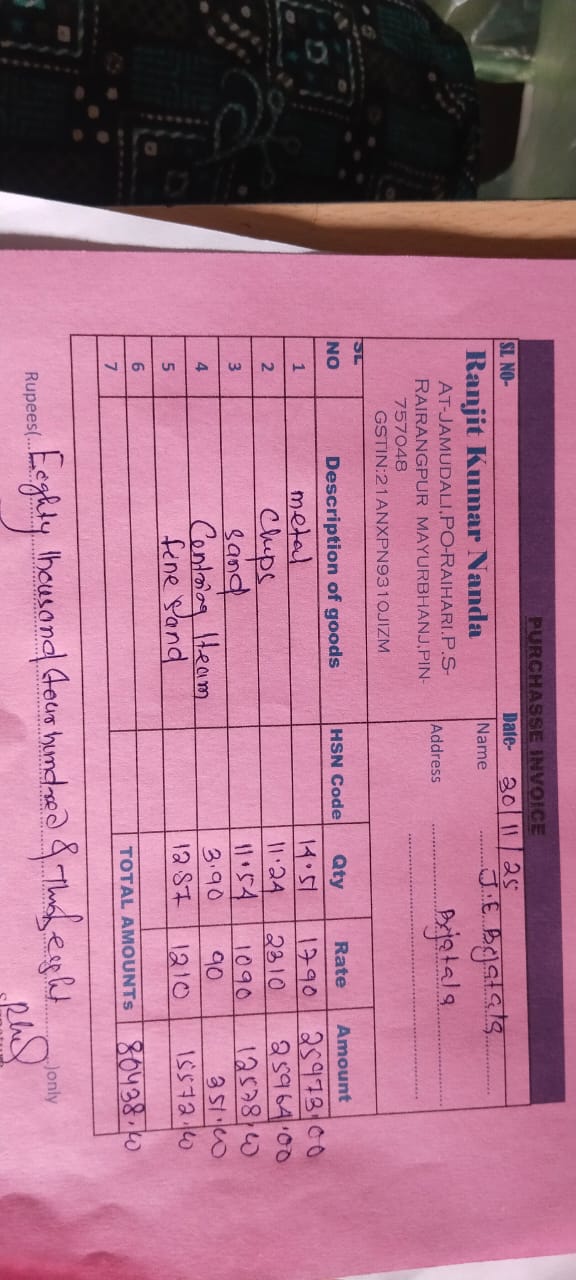 PURCHASSE INVOICE
SL NO- Date- 30/11/25
Ranjit Kumar Nanda
AT-JAMUDALI,PO-RAIHARI.P.S-
RAIRANGPUR MAYURBHANJ,PIN-
757048
GSTIN:21ANXPN9310JIZM
Name J.E. Brjatala
Address Brjatala
SL NO Description of goods HSN Code Qty Rate Amount
1 metal 14.51 1790 25973.00
2 Chips 11.24 2310 25964.00
3 Sand 11.54 1090 12578.00
4 Centring 3.90 90 351.00
5 fine Sand 12.87 1210 15572.00
6 TOTAL AMOUNTS 80438.00
7
Rupees(...Eeghty thousand four hundred & Thirty eight...)only